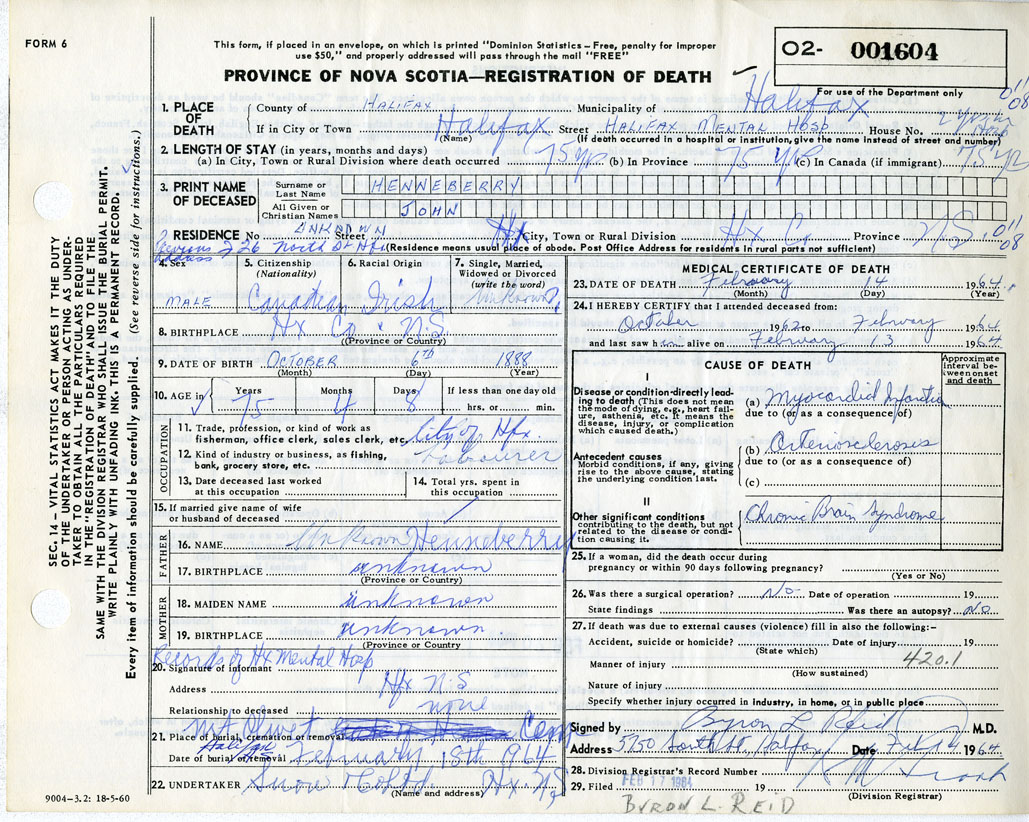 FORM 6
This form, if placed in an envelope, on which is printed "Dominion Statistics—Free, penalty for improper
use $50," and properly addressed will pass through the mail "FREE"
O2- 001604
PROVINCE OF NOVA SCOTIA—REGISTRATION OF DEATH
For use of the Department only
011
08
1. PLACE OF DEATH
County of HALIFAX Municipality of Halifax
If in City or Town Halifax Street HALIFAX MENTAL HOSP House No.
(Name) (If death occurred in a hospital or institution, give the name instead of street and number)
2. LENGTH OF STAY (in years, months and days)
(a) In City, Town or Rural Division where death occurred 75 yr (b) In Province 75 yrs (c) In Canada (if immigrant) 75 yr
3. PRINT NAME OF DECEASED
Surname or Last Name HENNEBERRY
All Given or Christian Names JOHN
RESIDENCE No UNKNOWN Street Hx City, Town or Rural Division Hx Co Province N.S. 011
08
Previous address 226 North St Hfx (Residence means usual place of abode. Post Office Address for residents in rural parts not sufficient)
4. Sex
MALE
5. Citizenship
(Nationality)
Canadian
6. Racial Origin
Irish
7. Single, Married,
Widowed or Divorced
(write the word)
Unknown
8. BIRTHPLACE Hx Co. N.S
(Province or Country)
9. DATE OF BIRTH OCTOBER 6th 1888
(Month) (Day) (Year)
10. AGE in
Years 75
Months 4
Days 8
If less than one day old
hrs. or min.
OCCUPATION
11. Trade, profession or kind of work as
fisherman, office clerk, sales clerk, etc. City of Hfx.
12. Kind of industry or business, as fishing,
bank, grocery store, etc. Labourer
13. Date deceased last worked
at this occupation
14. Total yrs. spent in
this occupation
15. If married give name of wife
or husband of deceased
FATHER
16. NAME Unknown Henneberry
17. BIRTHPLACE unknown
(Province or Country)
MOTHER
18. MAIDEN NAME unknown
19. BIRTHPLACE unknown
(Province or Country)
Records of Hx Mental Hosp
20. Signature of informant
Address Hfx N.S
Relationship to deceased none
Mt Olivet Cem
21. Place of burial, cremation or removal
Halifax
Date of burial or removal February 18th 1964
22. UNDERTAKER Snow & Co Ltd. Hx. N.S
(Name and address)
9004—3.2: 18-5-60
MEDICAL CERTIFICATE OF DEATH
23. DATE OF DEATH February 14 1964
(Month) (Day) (Year)
24. I HEREBY CERTIFY that I attended deceased from:
October 1962 to February 1964
and last saw him alive on February 13 1964
CAUSE OF DEATH
Approximate
interval be-
tween onset
and death
I
Disease or condition directly lead-
ing to death (This does not mean
the mode of dying, e.g., heart fail-
ure, asthenia, etc. It means the
disease, injury, or complication
which caused death.)
(a) Myocardial Infarction
due to (or as a consequence of)
Antecedent causes
Morbid conditions, if any, giving
rise to the above cause, stating
the underlying condition last.
(b) Arteriosclerosis
due to (or as a consequence of)
(c)
II
Other significant conditions
contributing to the death, but not
related to the disease or condi-
tion causing it.
Chronic Brain Syndrome
25. If a woman, did the death occur during
pregnancy or within 90 days following pregnancy?
(Yes or No)
26. Was there a surgical operation? No Date of operation 19
State findings Was there an autopsy? No
27. If death was due to external causes (violence) fill in also the following:—
Accident, suicide or homicide? Date of injury 19
(State which)
420.1
Manner of injury
(How sustained)
Nature of injury
Specify whether injury occurred in industry, in home, or in public place
Signed by Byron L Reid M.D.
Address 5250 South St Halifax Date Feb 14 1964
28. Division Registrar's Record Number
29. Filed FEB 17 1964 19
(Division Registrar)
BYRON L. REID
SEC. 14 — VITAL STATISTICS ACT MAKES IT THE DUTY
OF THE UNDERTAKER OR PERSON ACTING AS UNDER-
TAKER TO OBTAIN ALL THE PARTICULARS REQUIRED
IN THE "REGISTRATION OF DEATH" AND TO FILE THE
SAME WITH THE DIVISION REGISTRAR WHO SHALL ISSUE THE BURIAL PERMIT.
WRITE PLAINLY WITH UNFADING INK. THIS IS A PERMANENT RECORD.
Every item of information should be carefully supplied. (See reverse side for instructions.)